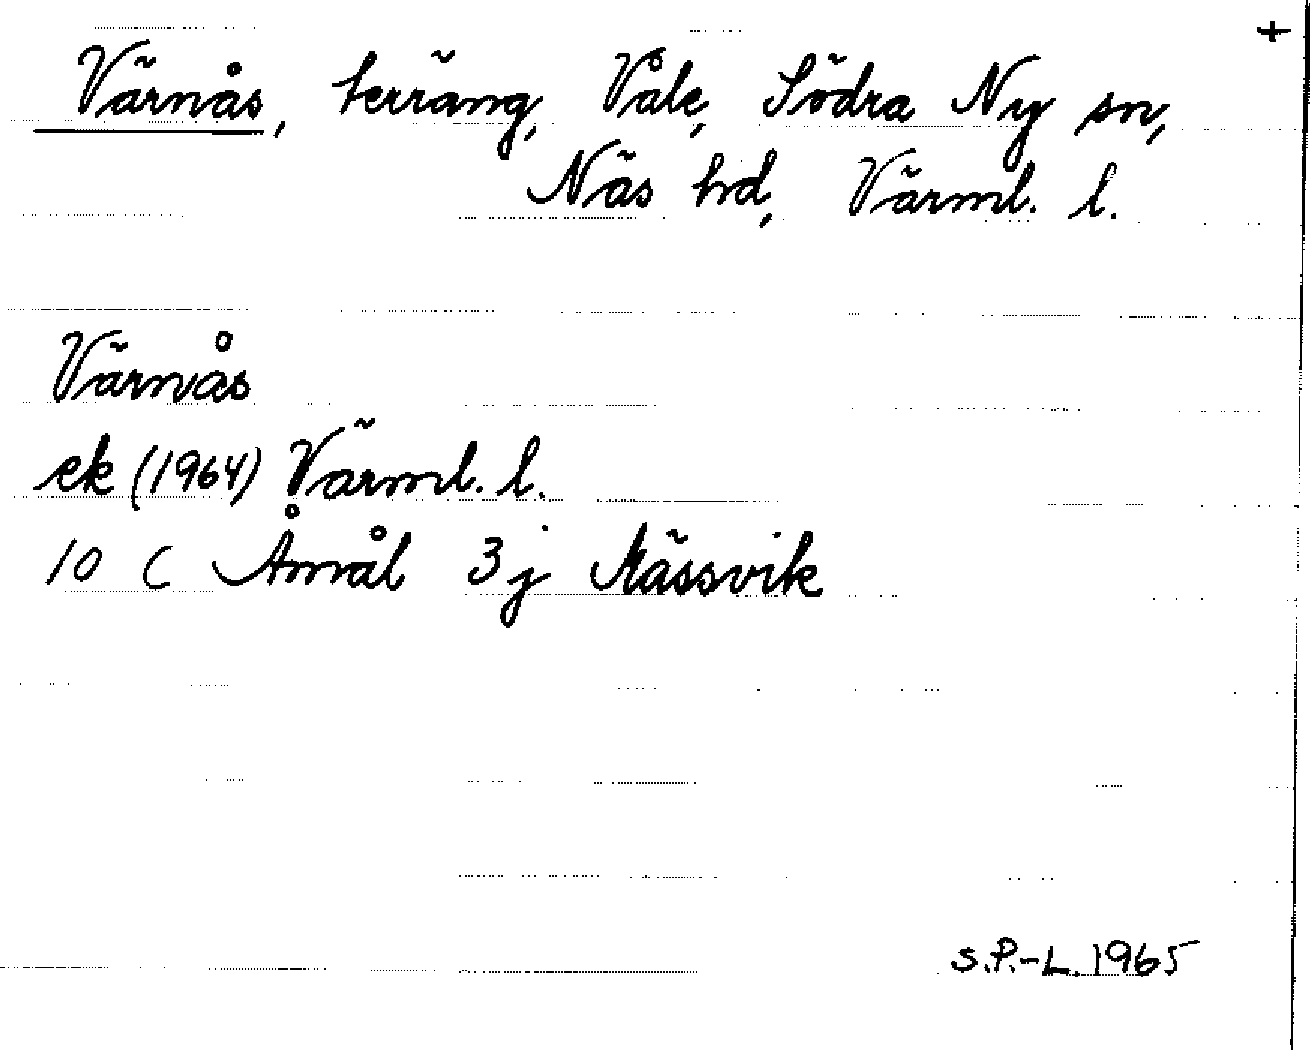 +
Värnås, terräng, Våle, Södra Ny sn,
Näs hd, Värml. l.
Värnås
ek (1964) Värml. l.
10 C Åmål 3 j Mässvik
S.P.-L. 1965